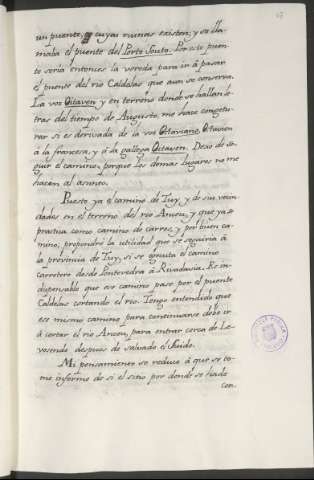 un puente, cuyas ruinas existen; y se lla-
maba el puente del Porto Souto. Por este puen-
te sería entonces la vereda para ir á pasar
el puente del rio Caldelas que aun se conserva.
La voz Oitaven y en terreno donde se hallan le-
tras del tiempo de Augusto, me hace congetu-
rar si es derivada de la voz Octaviano, Octaven
á la francesa, y á la gallega Oitaven. Dexo de se-
guir el camino, porque los demas lugares no me
hacen al asunto.
Puesto ya el camino de Tuy, y de sus vecin-
dades en el terreno del rio Anceu, y que ya se
practica como camino de carros, y por buen ca-
mino, propondré la utilidad que se seguiria á
la provincia de Tuy, si se executa el camino
carretero desde Pontevedra á Rivadavia. Es in-
dispensable que ese camino pase por el puente
Caldelas cortando el rio. Tengo entendido que
ese mismo camino para continuarse debe ir
á cortar el rio Anceu, para entrar cerca de Le-
vosende despues de salvado el Suido.
Mi pensamiento se reduce á que se to-
me informe de si el sitio por donde se hade
con-